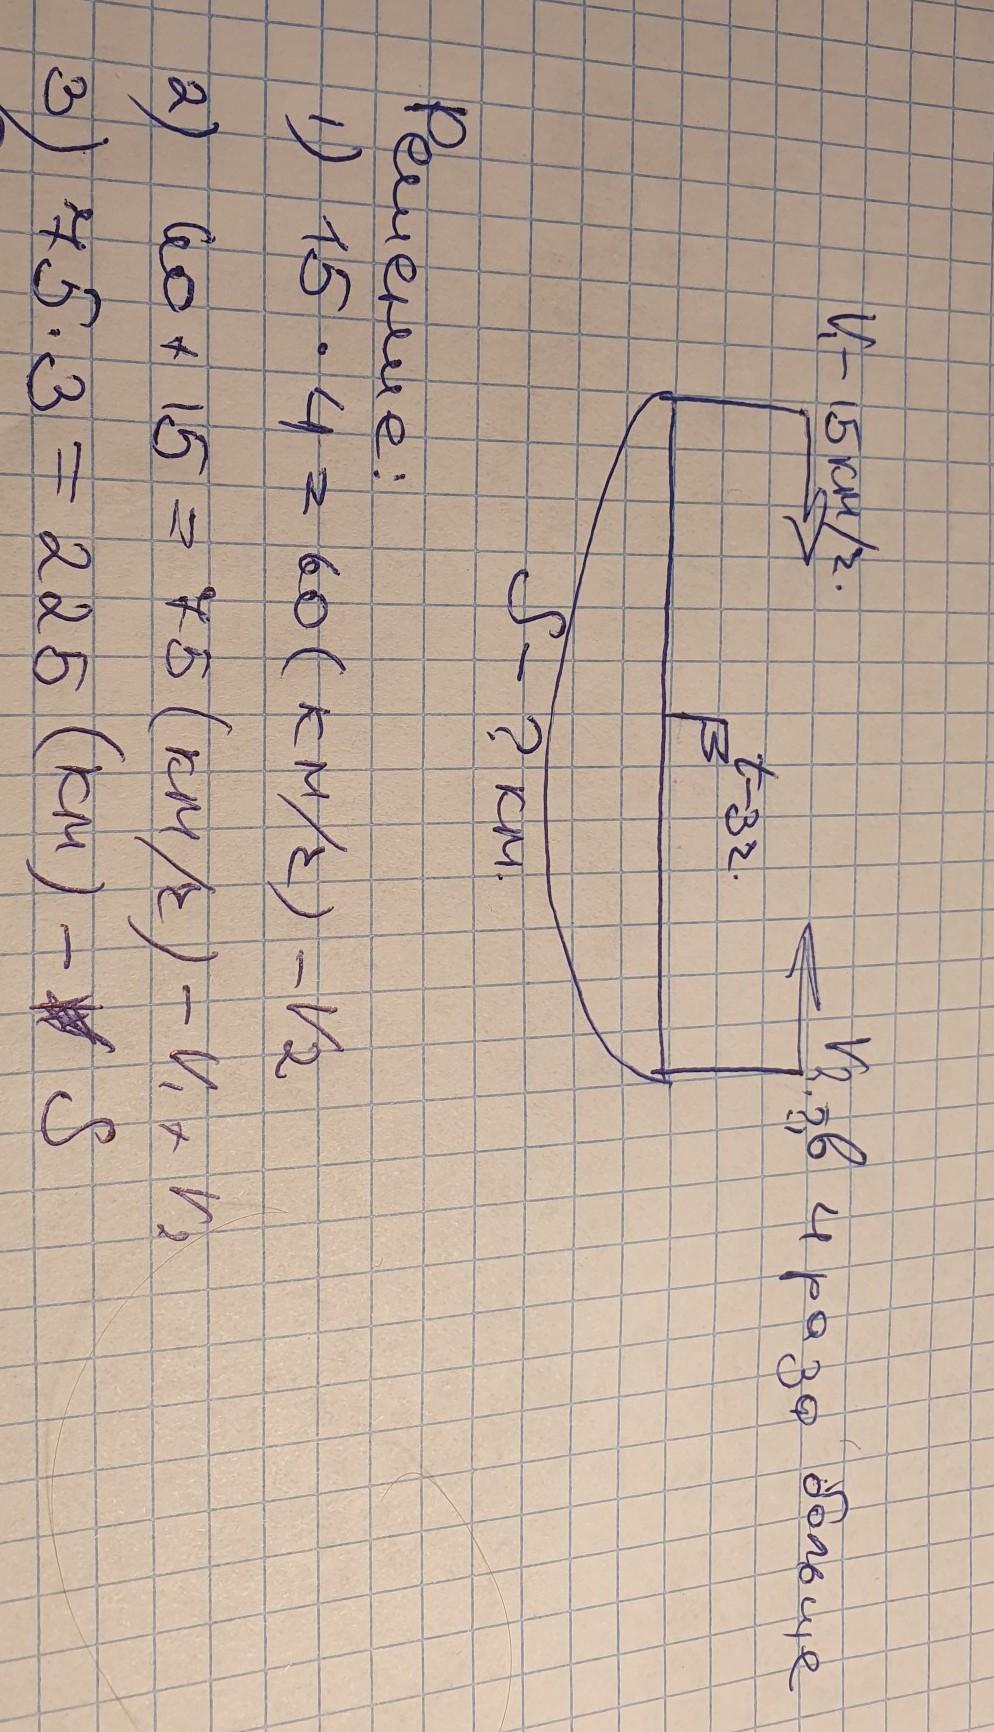 V₁ - 15 км/ч. V₂ - ?, в 4 раза больше
t - 3ч.
В
S - ? км.
Решение:
1) 15 · 4 = 60 (км/ч) - V₂
2) 60 + 15 = 75 (км/ч) - V₁ + V₂
3) 75 · 3 = 225 (км) - S